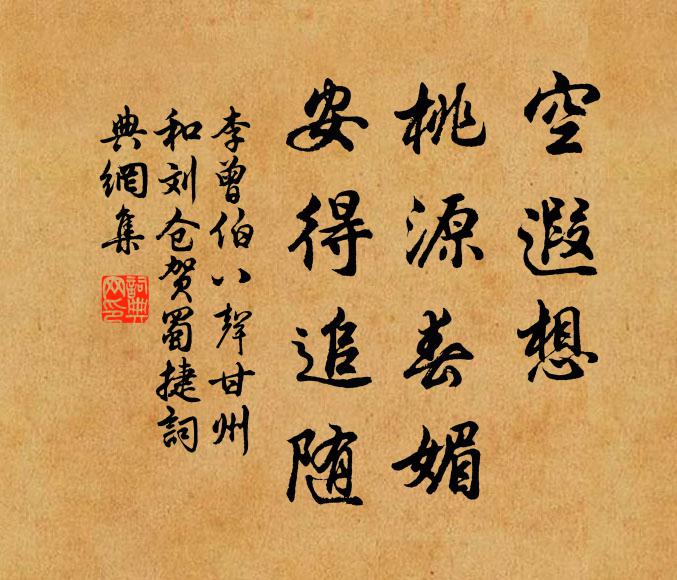 空遐想
桃源春媚
安得追随
李曾伯八声甘州
和刘仓贺蜀捷词
典網集
詞典網印